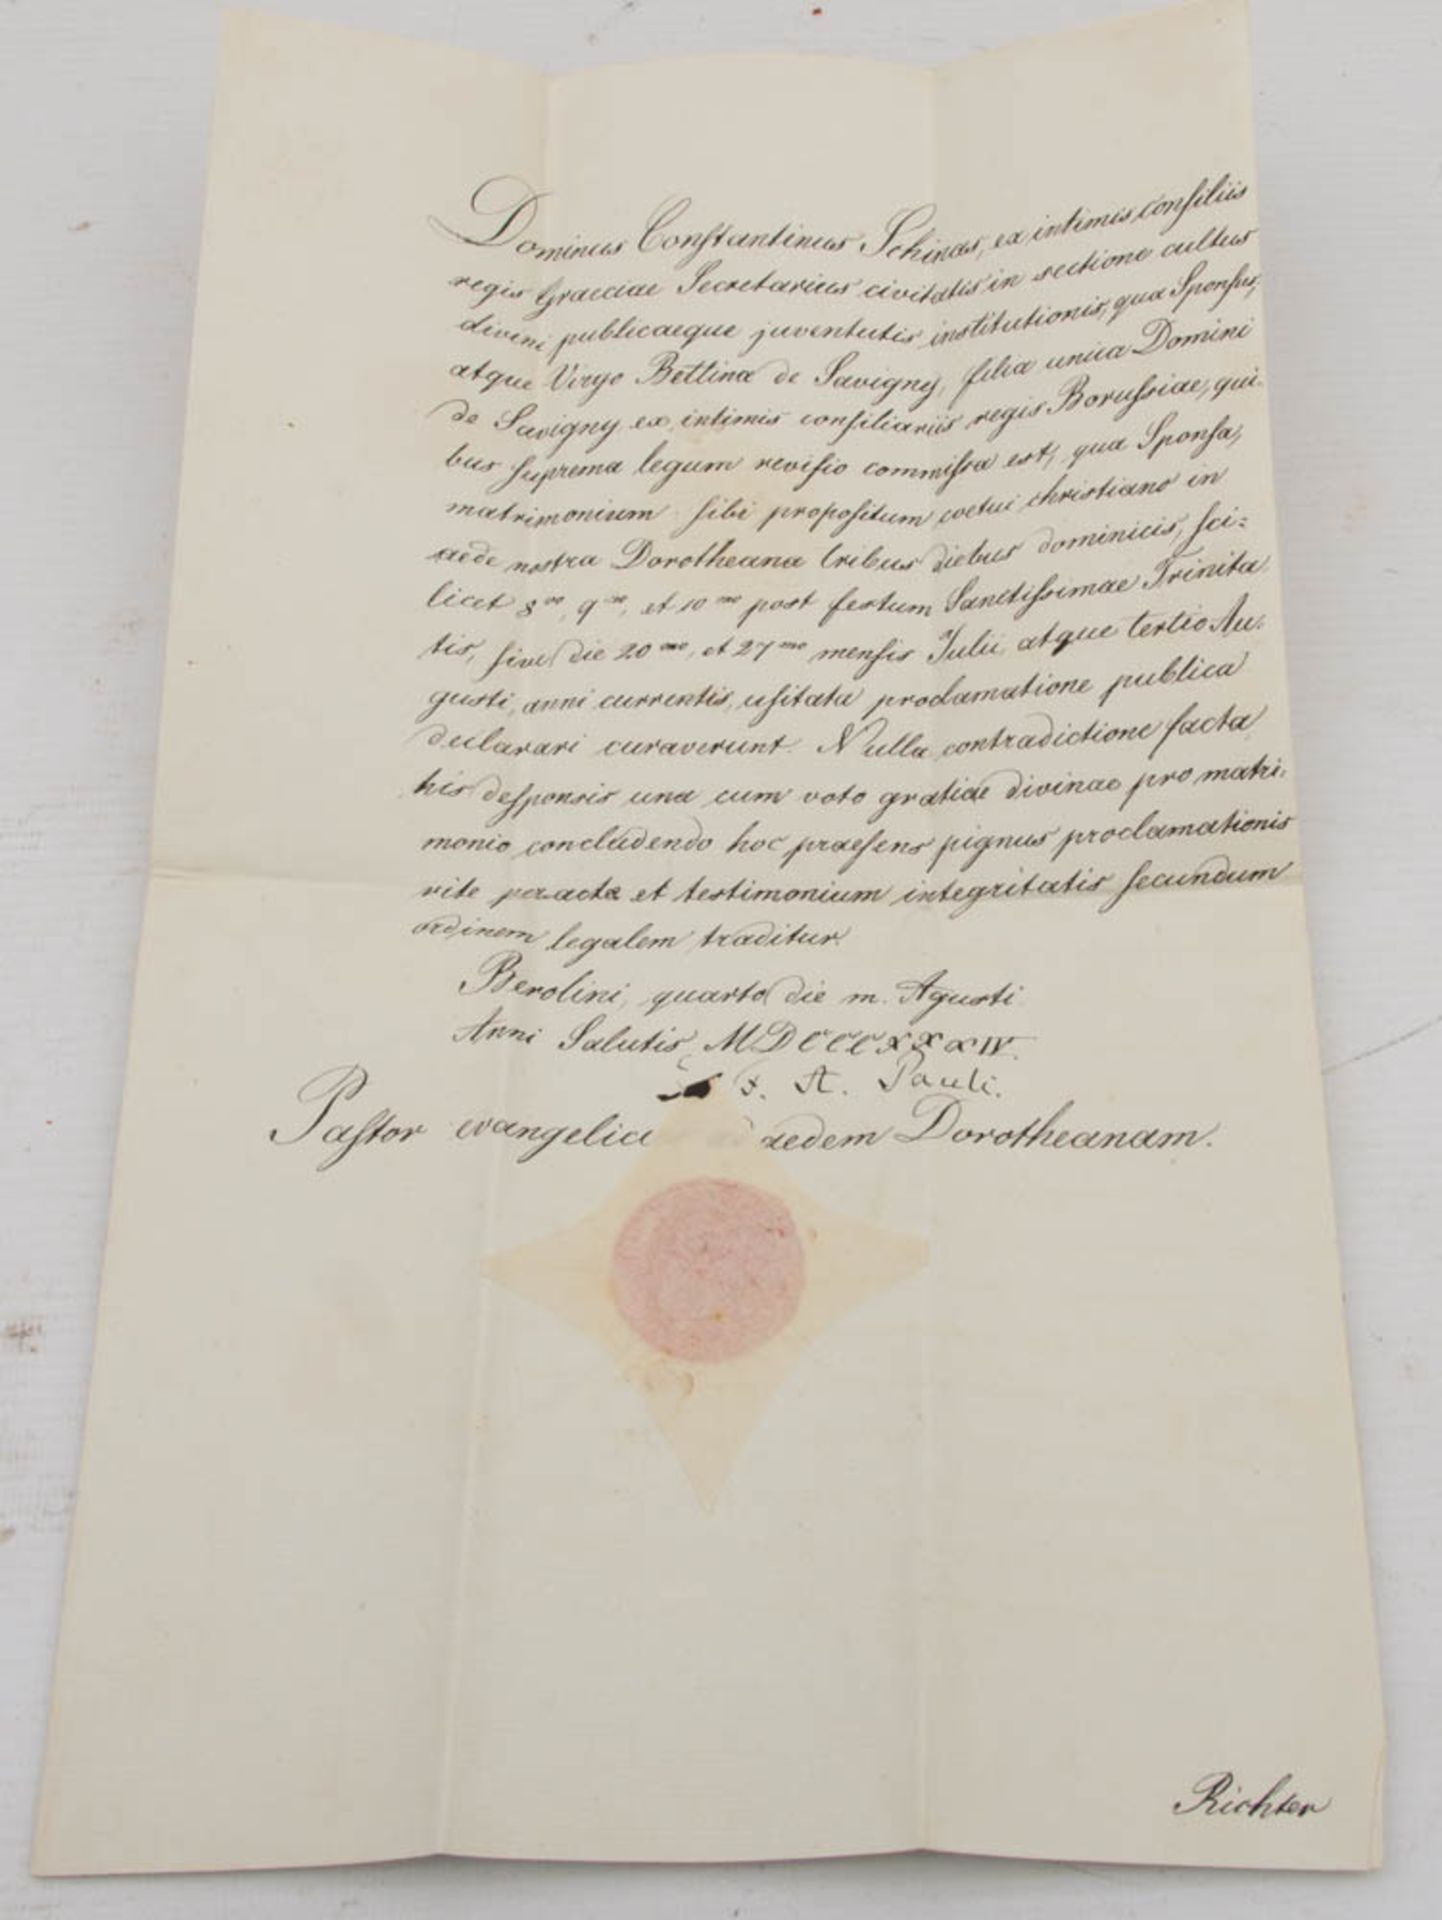 Dominus Constantinus Schinas, ex intimis consiliis
regis Graeciae Secretarius civitatis in sectione cultus
divini publicaeque juventutis institutionis, qua Sponsus,
atque Virgo Bettina de Savigny, filia unica Domini
de Savigny ex intimis consiliariis regis Borussiae, qui-
bus suprema legum revisio commissa est, qua Sponsa,
matrimonium sibi propositum coetui christiano in
aede nostra Dorotheana tribus diebus dominicis, sci=
licet 8vo, 9no, et 10mo post festum Sanctissimae Trinita-
tis, sive die 20mo, et 27mo mensis Julii atque tertio Au-
gusti, anni currentis, usitata proclamatione publica
declarari curaverunt. Nulla contradictione facta
his desponsis una cum voto gratiae divinae pro matri-
monio concludendo hoc praesens pignus proclamationis
rite peracta et testimonium integritatis secundum
ordinem legalem traditur.
Berolini, quarto die m. Agusti
Anni Salutis MDCCCXXXIV.
F. A. Pauli.
Pastor evangelic aedem Dorotheanam.
Richter